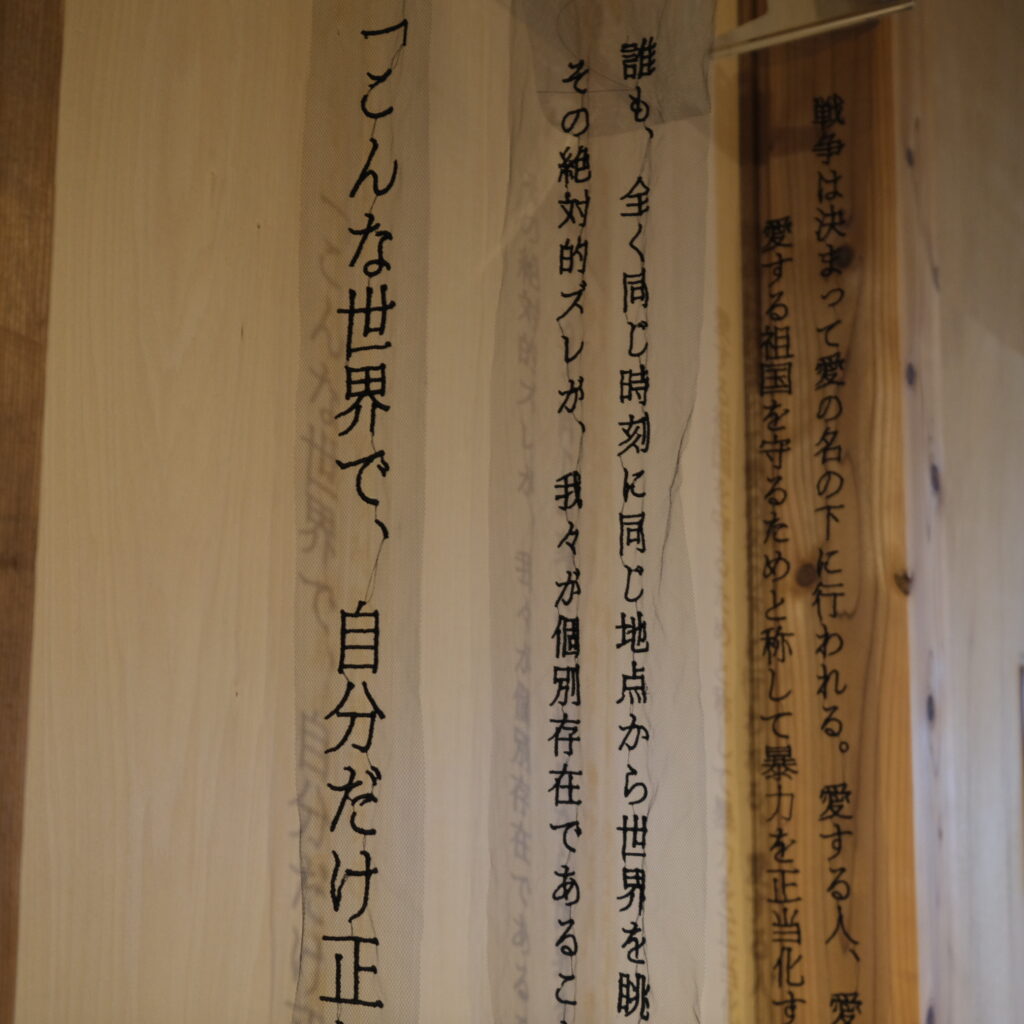 戦争は決まって愛の名の下に行われる。愛する人、愛
愛する祖国を守るためと称して暴力を正当化す
誰も、全く同じ時刻に同じ地点から世界を眺
その絶対的ズレが、我々が個別存在であるこ
「こんな世界で、自分だけ正